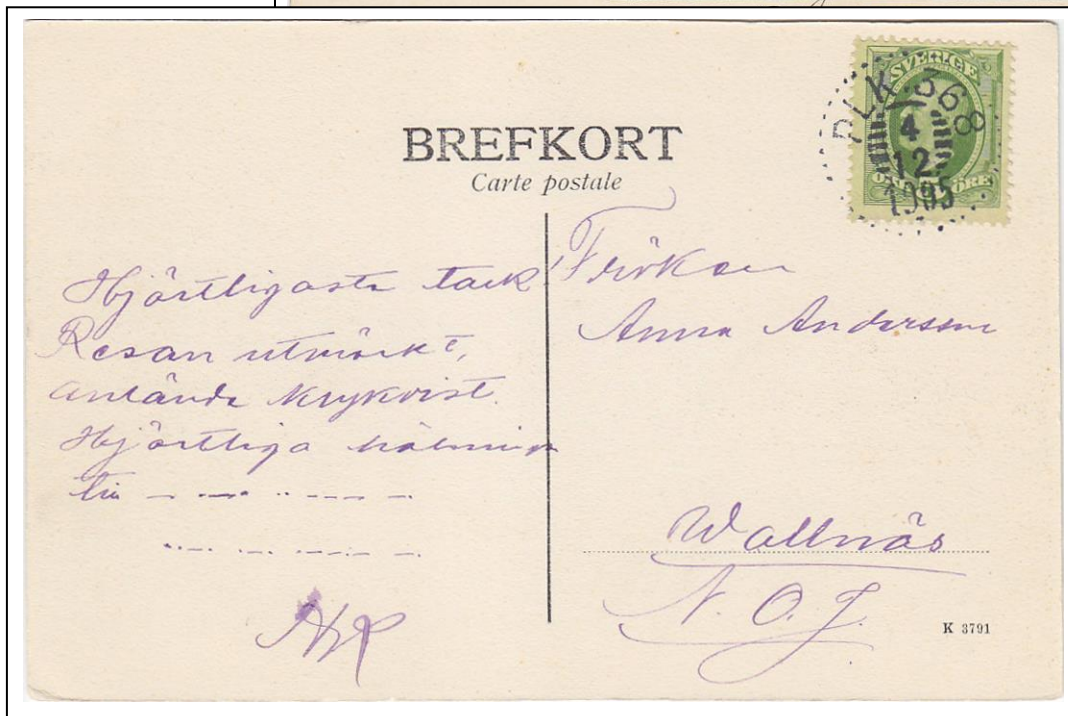 BREFKORT
Carte postale
SVERIGE
PLK 368
4
12
1905
ÖRE
Hjärtligaste tack!
Resan utmärkt,
anlände Nyqvist.
Hjärtliga hälsningar
till
Fröken
Anna Andersson
Wallnäs
N. O. J.
K 3791